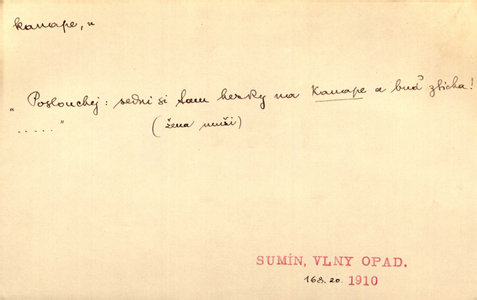 kanape, n
„Poslouchej: sedni si tam hezky na kanape a buď zticha!
....."
(žena muži)
SUMÍN, VLNY OPAD.
168.20 1910